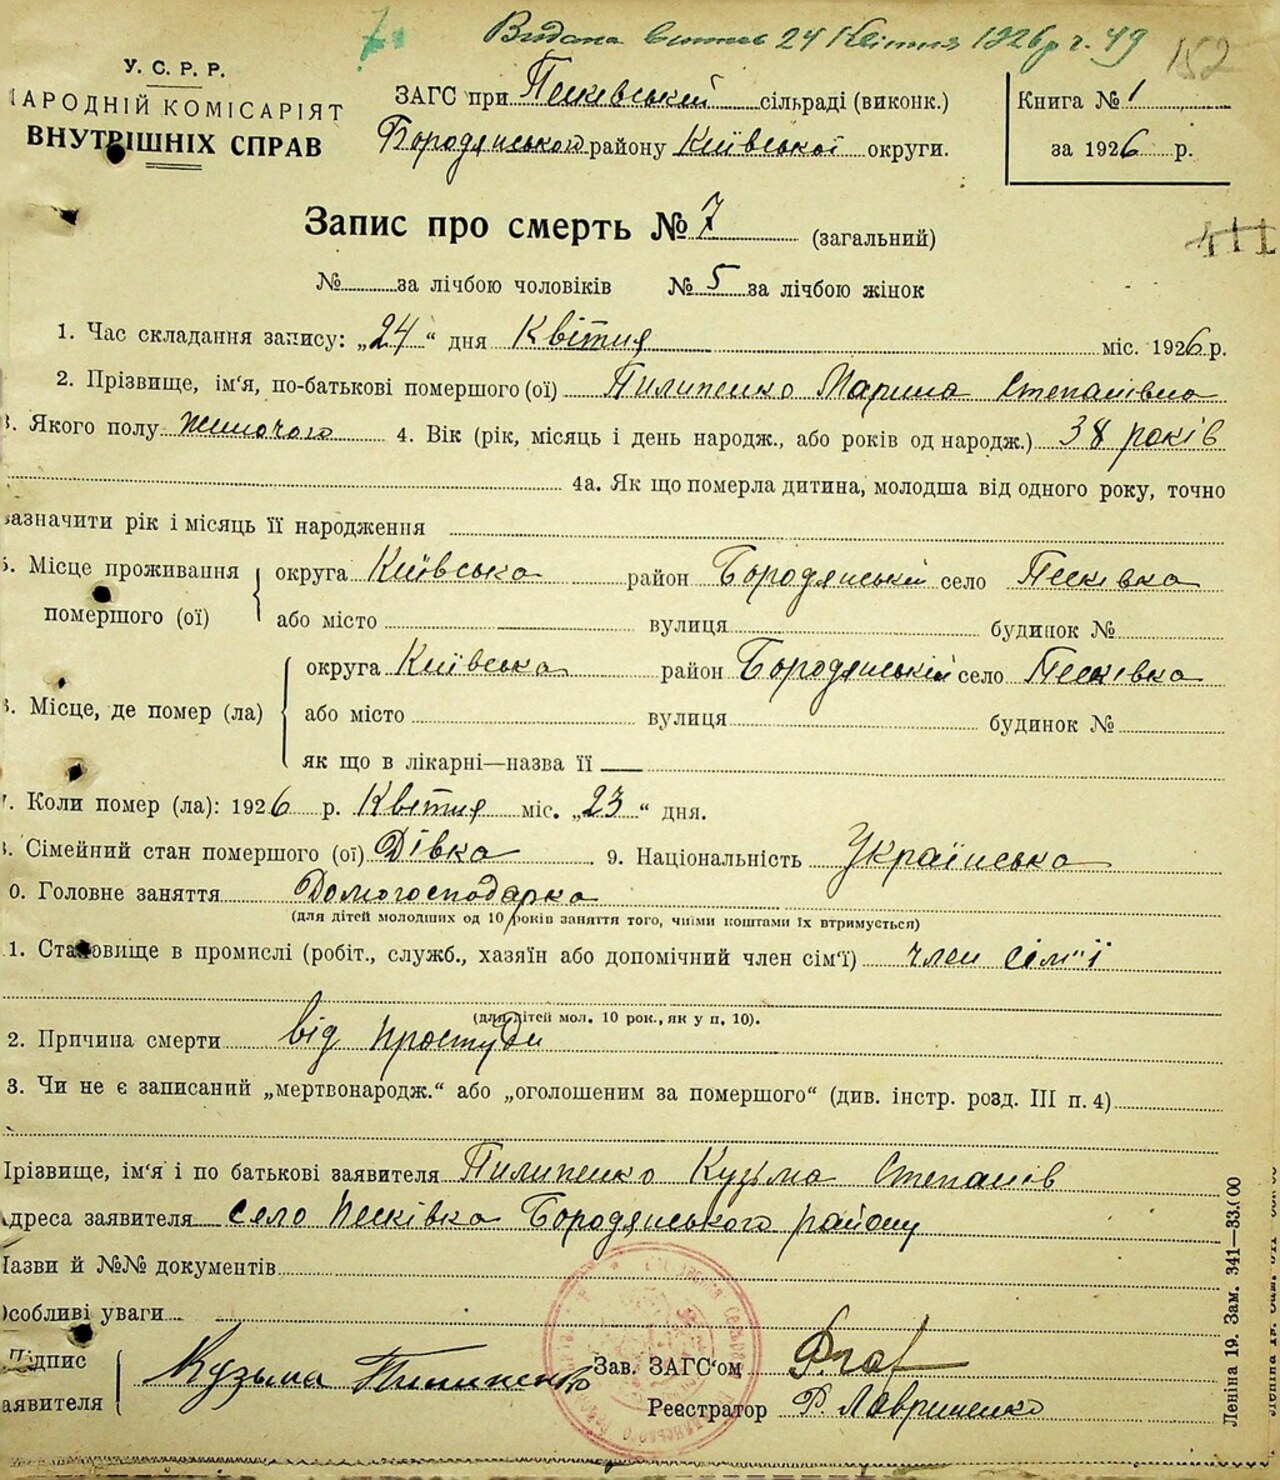 Видана витяг 24 Квітня 1926 р ч. 49 152
У. С. Р. Р.
НАРОДНІЙ КОМІСАРІЯТ
ВНУТРІШНІХ СПРАВ
ЗАГС при Пісківській сільраді (виконк.)
Бородянського району Київської округи.
Книга № 1
за 1926 р.
Запис про смерть № 7 (загальний)
411
№ за лічбою чоловіків № 5 за лічбою жінок
1. Час складання запису: „24“ дня Квітня міс. 1926 р.
2. Прізвище, ім'я, по-батькові помершого (ої) Пилипенко Марина Степанівна
3. Якого полу жиночого 4. Вік (рік, місяць і день народж., або років од народж.) 38 років
4а. Як що померла дитина, молодша від одного року, точно
зазначити рік і місяць її народження
5. Місце проживання помершого (ої) округа Київська район Бородянській село Пісківка
або місто вулиця будинок №
6. Місце, де помер (ла) округа Київська район Бородянській село Пісківка
або місто вулиця будинок №
як що в лікарні—назва її —
7. Коли помер (ла): 1926 р. Квітня міс. „23“ дня.
8. Сімейний стан помершого (ої) Дівка 9. Національність Українська
10. Головне заняття Домогосподарка
(для дітей молодших од 10 років заняття того, чиїми коштами їх втримується)
11. Становище в промислі (робіт., служб., хазяїн або допомічний член сім'ї) член сім"ї
(для дітей мол. 10 рок., як у п. 10).
12. Причина смерти від простуди
13. Чи не є записаний „мертвонародж.“ або „оголошеним за помершого“ (див. інстр. розд. III п. 4)
Прізвище, ім'я і по батькові заявителя Пилипенко Кузьма Степанів
Адреса заявителя село Пісківка Бородянського району
Назви й №№ документів
Особливі уваги
Підпис заявителя Кузьма Пилипенко
Зав. ЗАГС'ом
Реестратор Р. Лавриненко
Леніна 19. Зам. 341—33.000